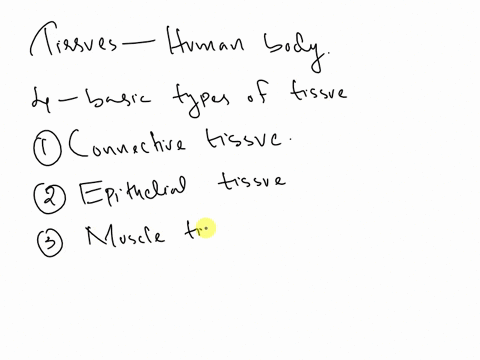 Tissues — Human body.
4 - basic types of tissue
① Connective tissue.
② Epithelial tissue
③ Muscle ti